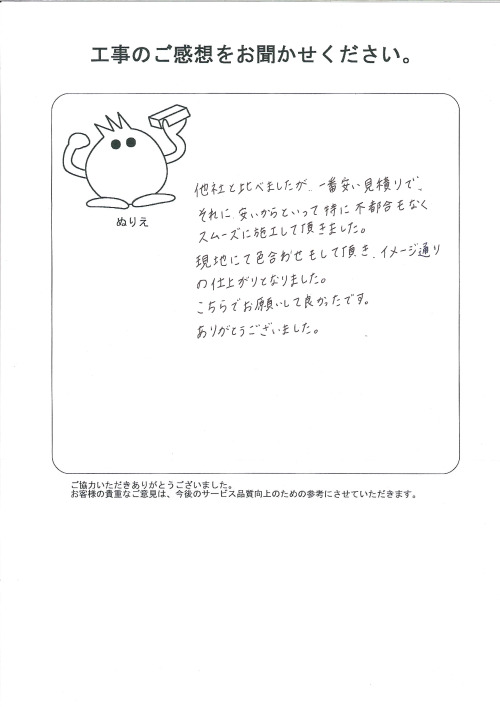 工事のご感想をお聞かせください。
ぬりえ
他社と比べましたが、一番安い見積りで、
それに、安いからといって特に不都合もなく
スムーズに施工して頂きました。
現地にて色合わせもして頂き、イメージ通り
の仕上がりとなりました。
こちらでお願いして良かったです。
ありがとうございました。
ご協力いただきありがとうございました。
お客様の貴重なご意見は、今後のサービス品質向上のための参考にさせていただきます。